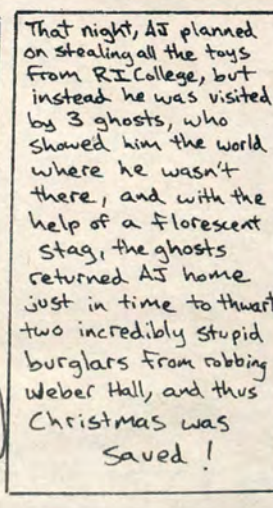 That night, AJ planned
on stealing all the toys
from R.I College, but
instead he was visited
by 3 ghosts, who
showed him the world
where he wasn't
there, and with the
help of a florescent
stag, the ghosts
returned AJ home
just in time to thwart
two incredibly stupid
burglars from robbing
Weber Hall, and thus
Christmas was
saved !